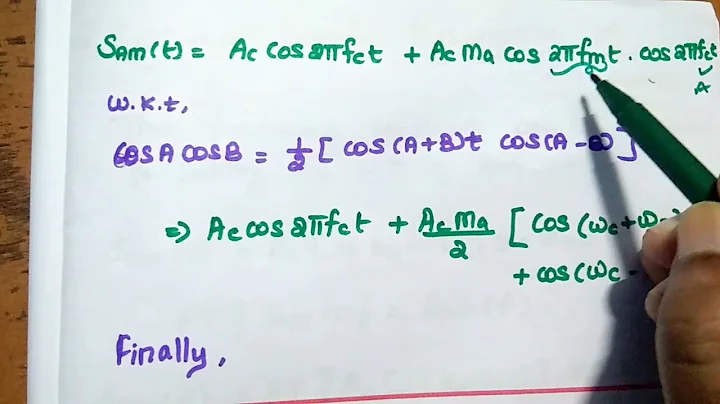 SAM(t) = Ac cos 2πfct + Ac Ma cos 2πfmt . cos 2πfct
A
W.K.t,
cosA cosB = 1/2 [ cos(A+B)+ cos(A-B) ]
⇒ Ac cos 2πfct + Ac Ma/2 [ cos (ωc+ω
+ cos(ωc -
Finally,